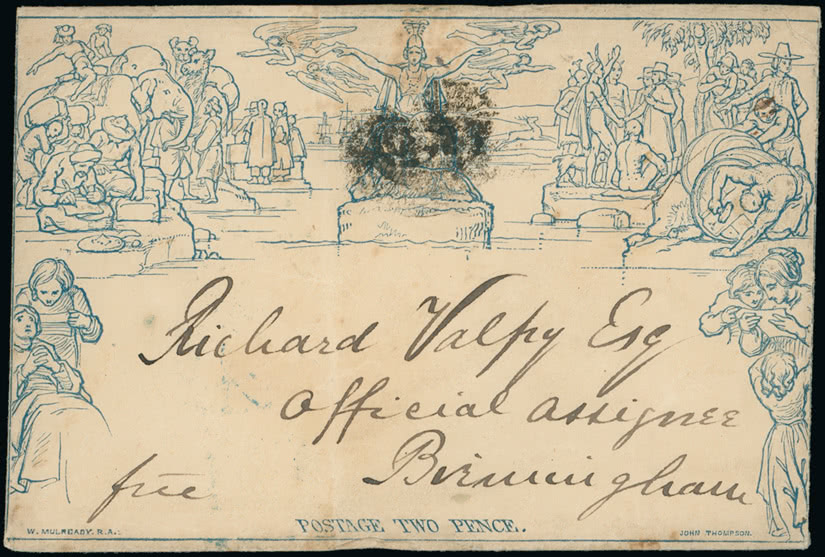 Richard Valpy Esq
Official Assignee
Birmingham
free
POSTAGE TWO PENCE.
W. MULREADY. R.A.
JOHN THOMPSON.